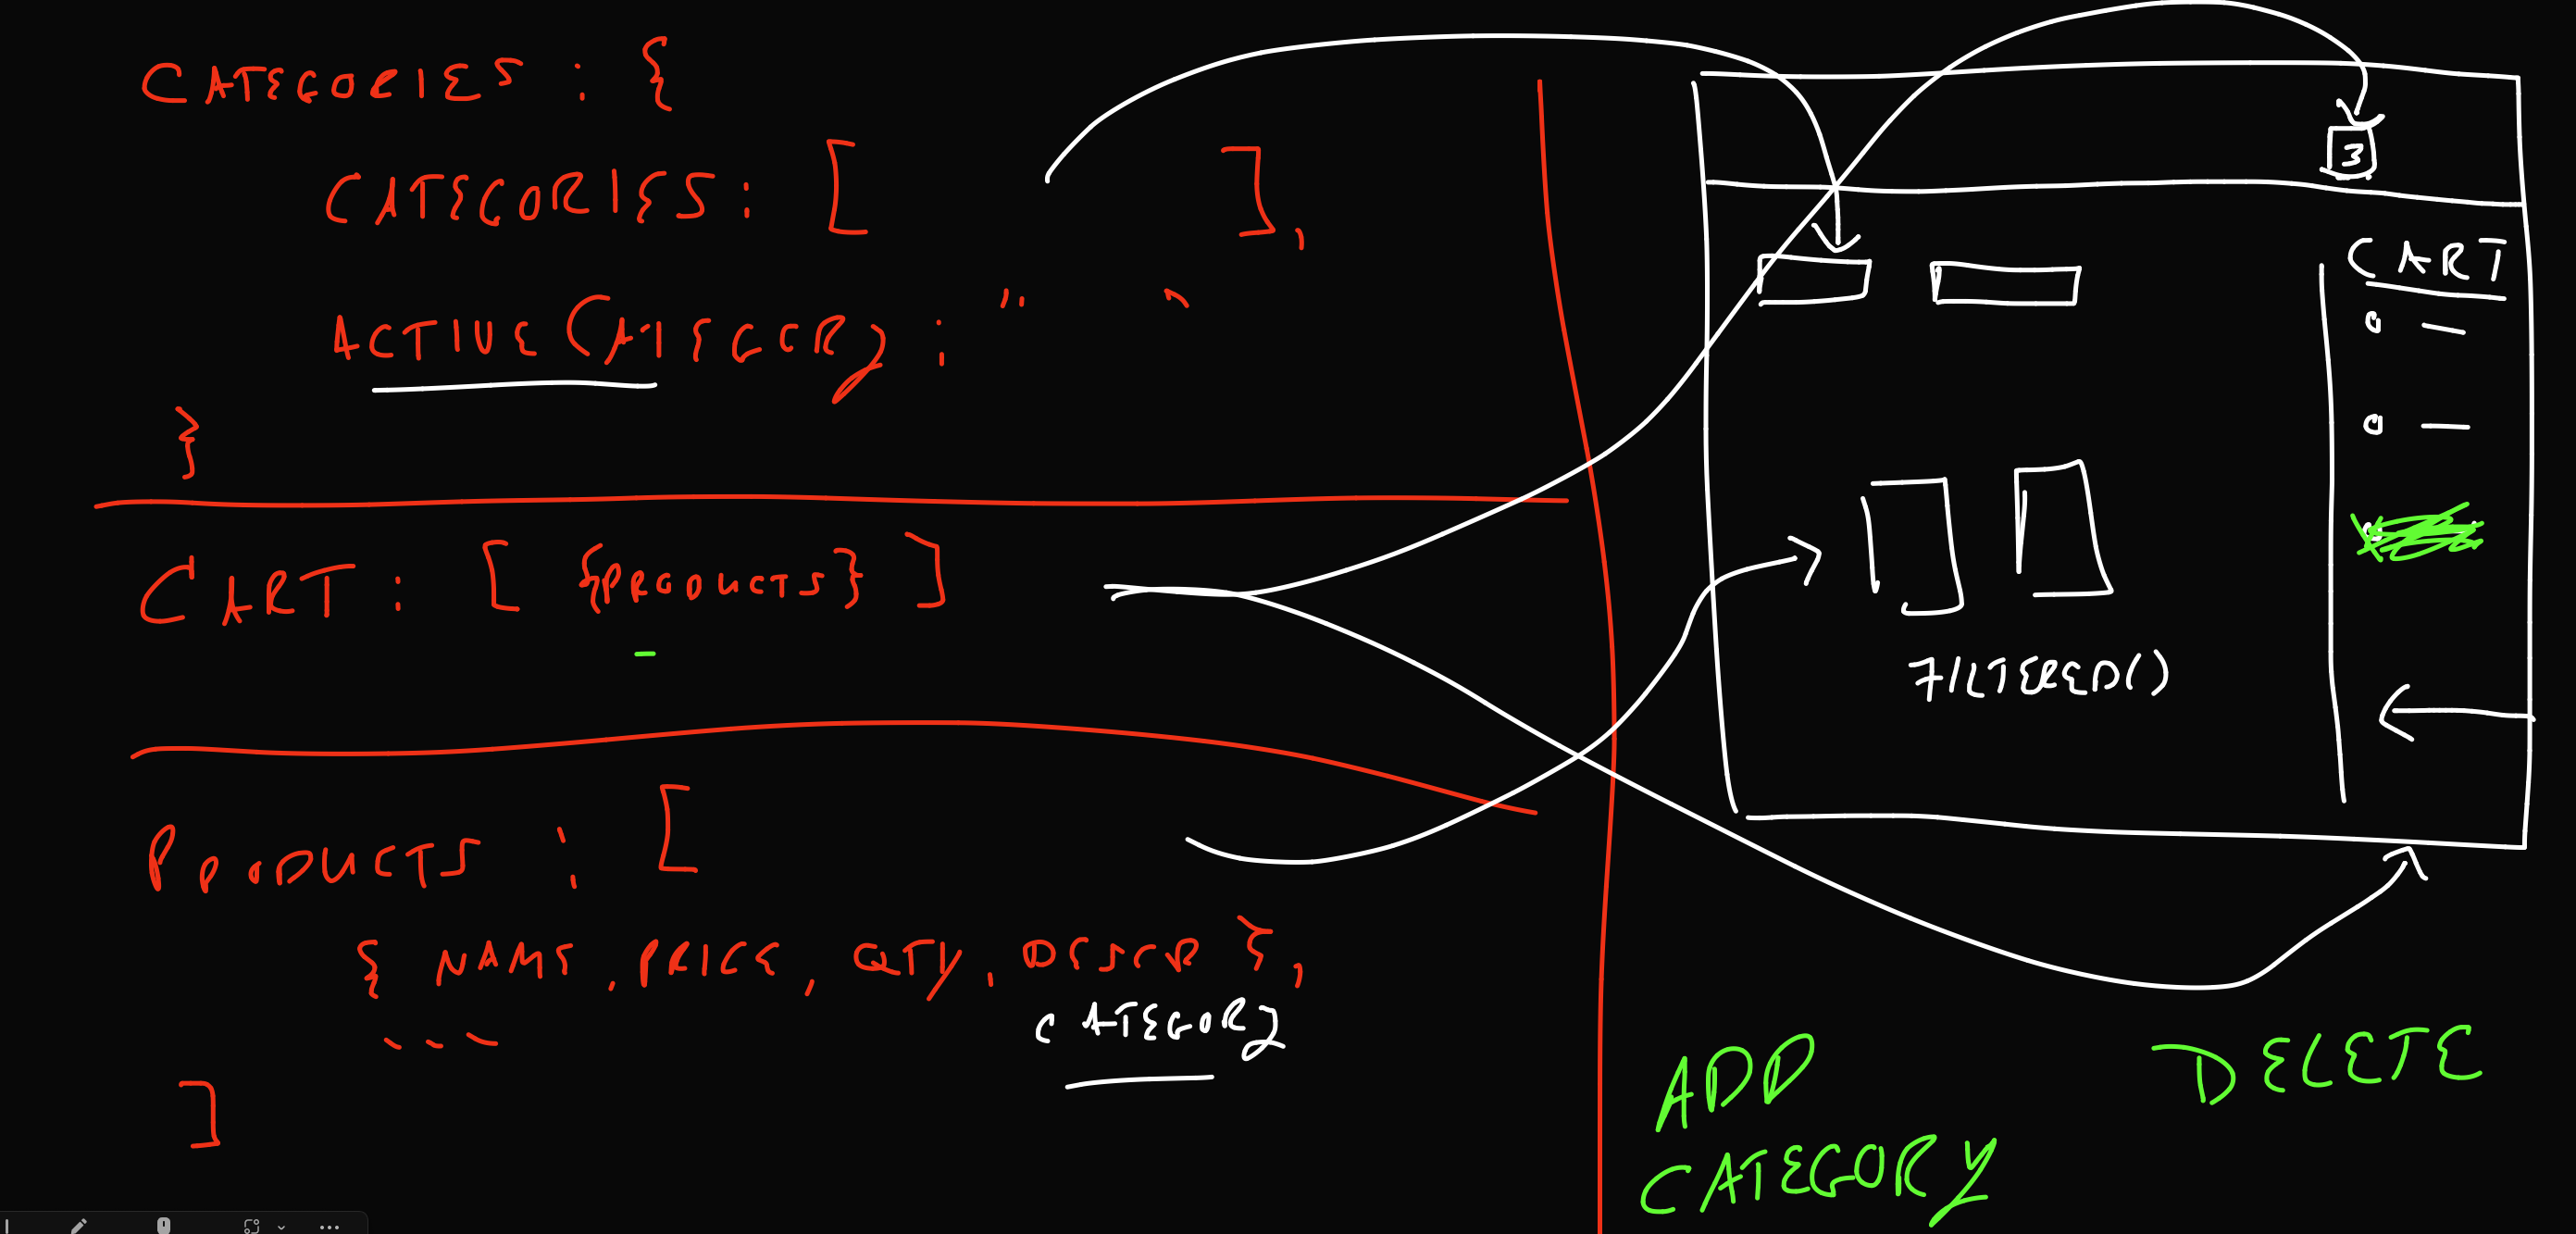 CATEGORIES : {
CATEGORIES : [ ],
ACTIVECATEGORY : " "
}
CART : [ {PRODUCTS} ]
PRODUCTS : [
{ NAME, PRICE, QTY, DESCR },
CATEGORY
...
]
3
CART
FILTERED()
ADD
CATEGORY
DELETE